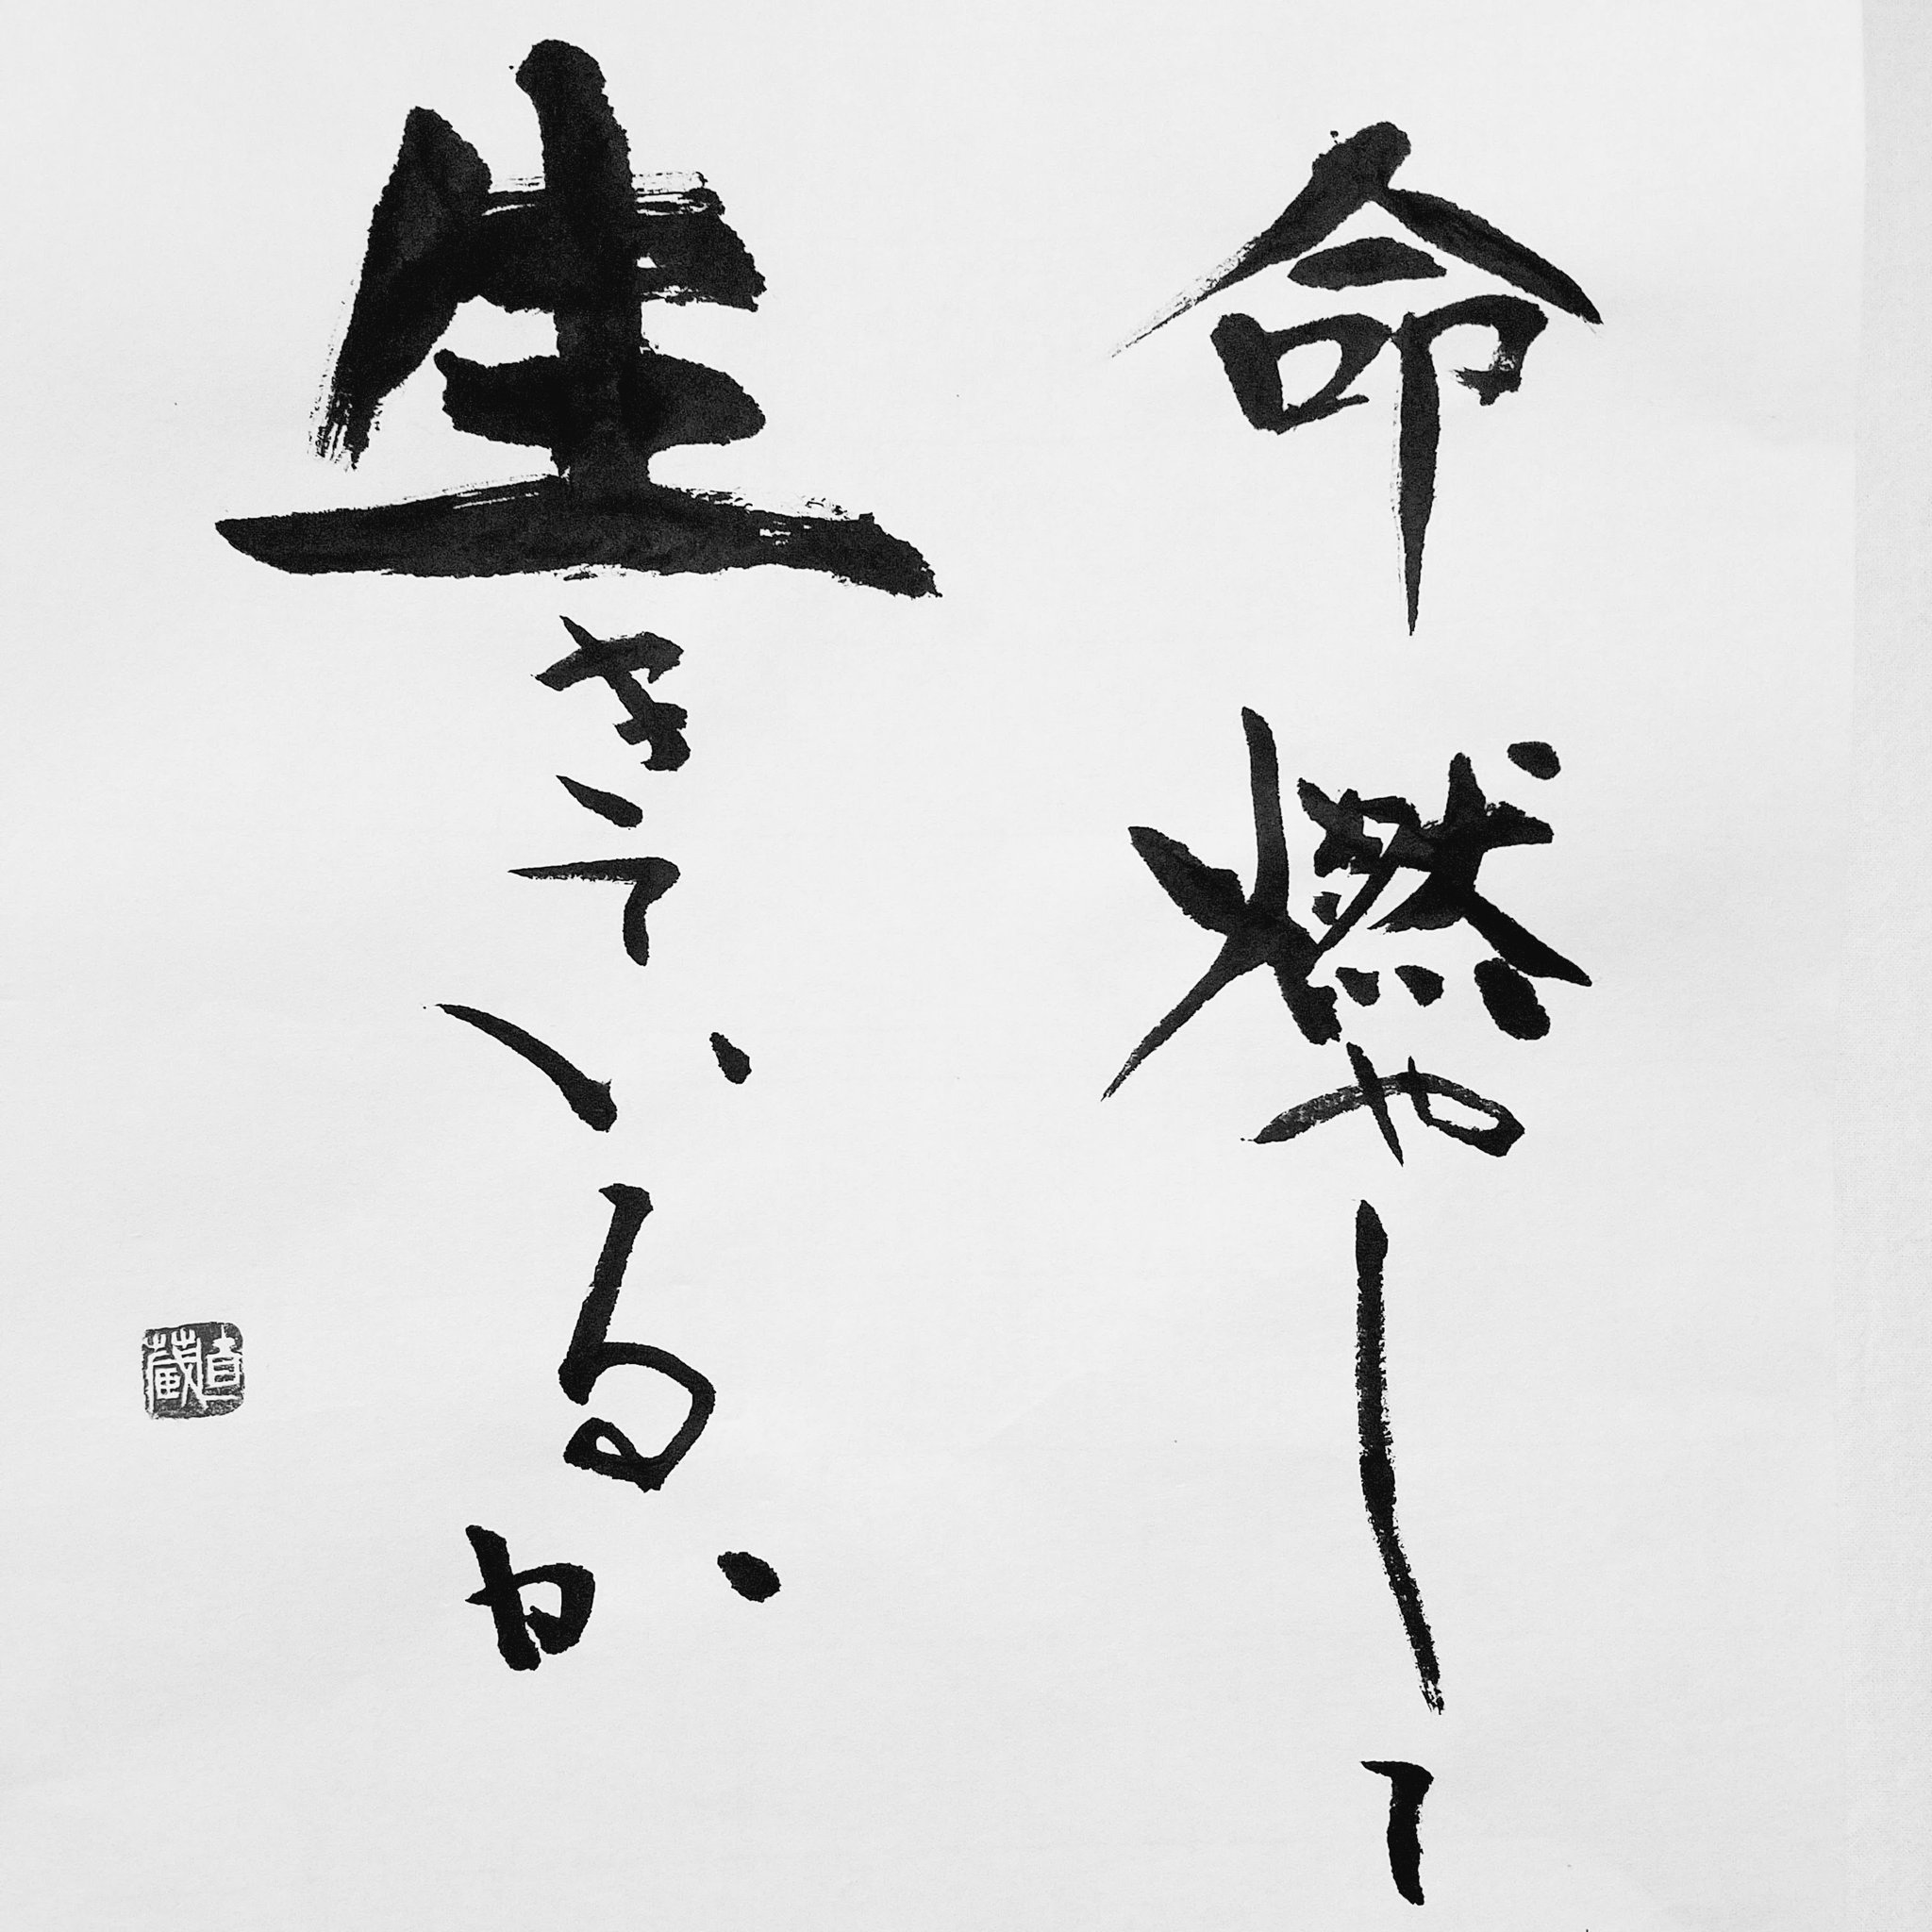 命燃やして
生きているか
直蔵